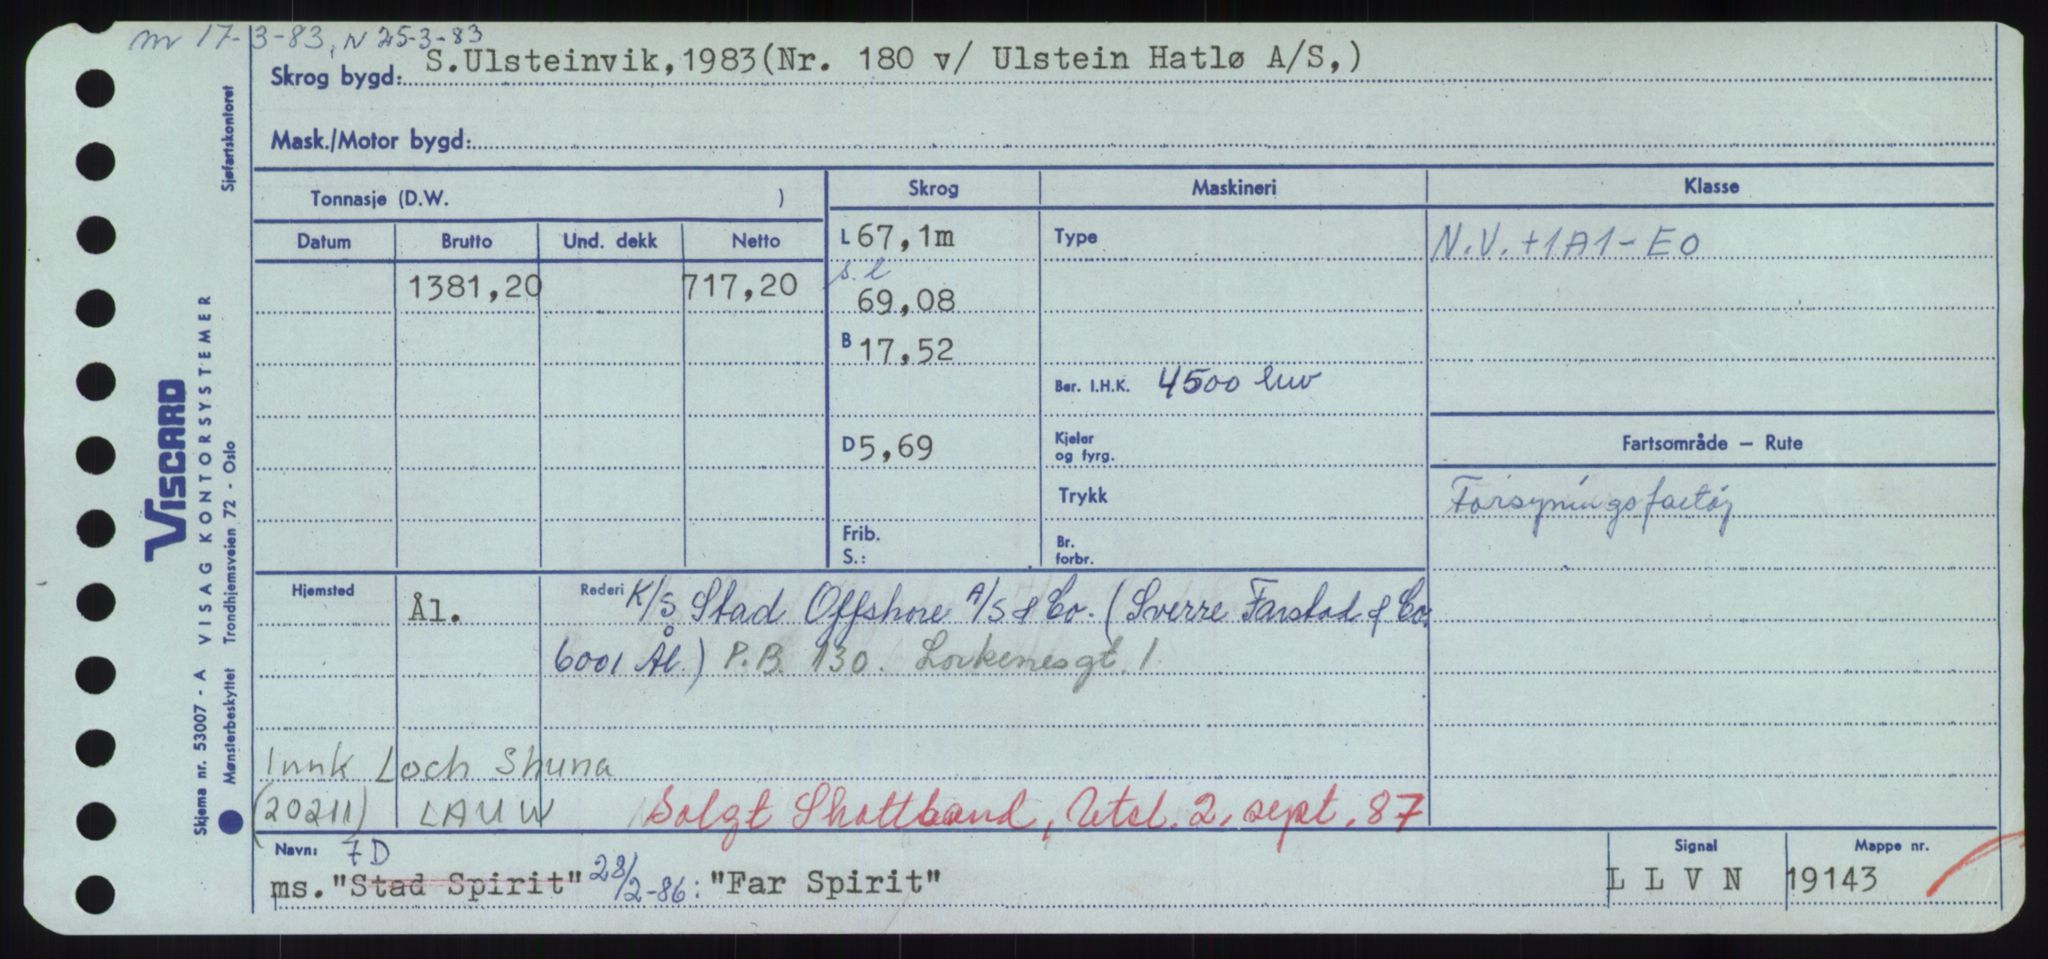 m 17-3-83, N 25-3-83
Skrog bygd: S.Ulsteinvik,1983(Nr. 180 v/ Ulstein Hatlø A/S,)
Mask./Motor bygd:
Tonnasje (D.W. )
Skrog
Maskineri
Klasse
Datum
Brutto
Und. dekk
Netto
L 67,1m
Type
N.V. +1A1-E0
1381,20
717,20
s.l
69,08
B 17,52
Ber. I.H.K. 4500
D 5,69
Kjeler
og fyrg.
Fartsområde – Rute
Trykk
Forsyningsfartøj
Frib.
S.:
Br.
forbr.
Hjemsted
Ål.
Rederi K/S Stad Offshore A/S & Co. (Sverre Farstad & Co.
6001 Ål.) P.B. 130.
Innk Loch Shuna
(20211) LAUW
Solgt Shottland, Utsl. 2. sept. 87
Navn: 7D
ms."Stad Spirit" 28/2-86: "Far Spirit"
Signal
L L V N
Mappe nr.
19143
Sjøfartskontoret
VISCARD
Skjema nr. 53007 - A VISAG KONTORSYSTEMER
Mønsterbeskyttet Trondhjemsveien 72 - Oslo